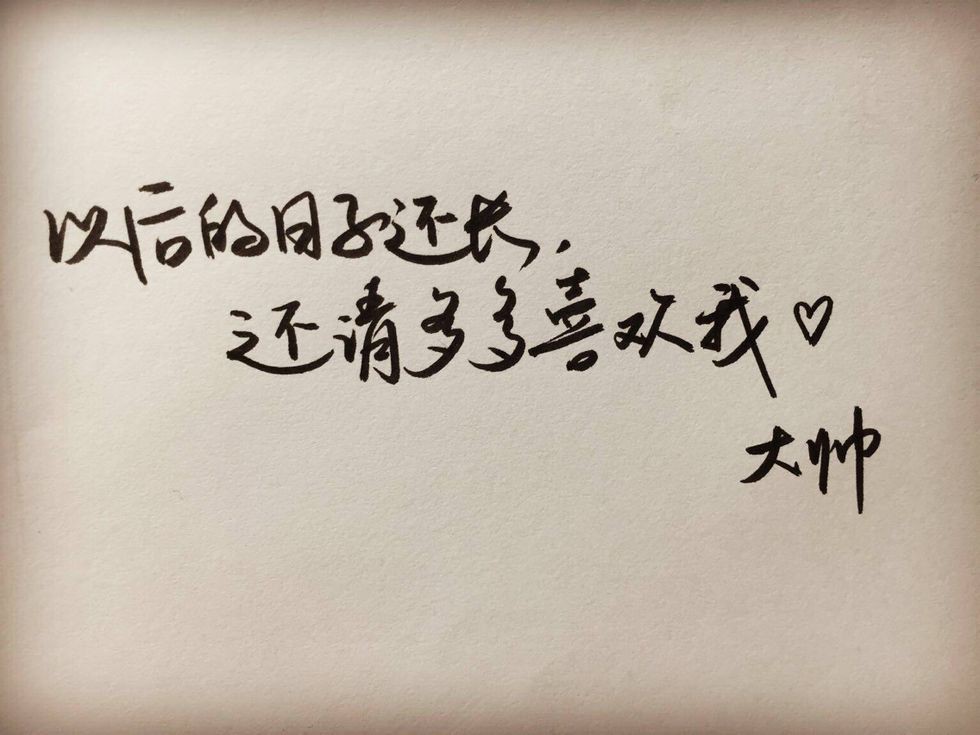 以后的日子还长，
还请多多喜欢我♡
大帅